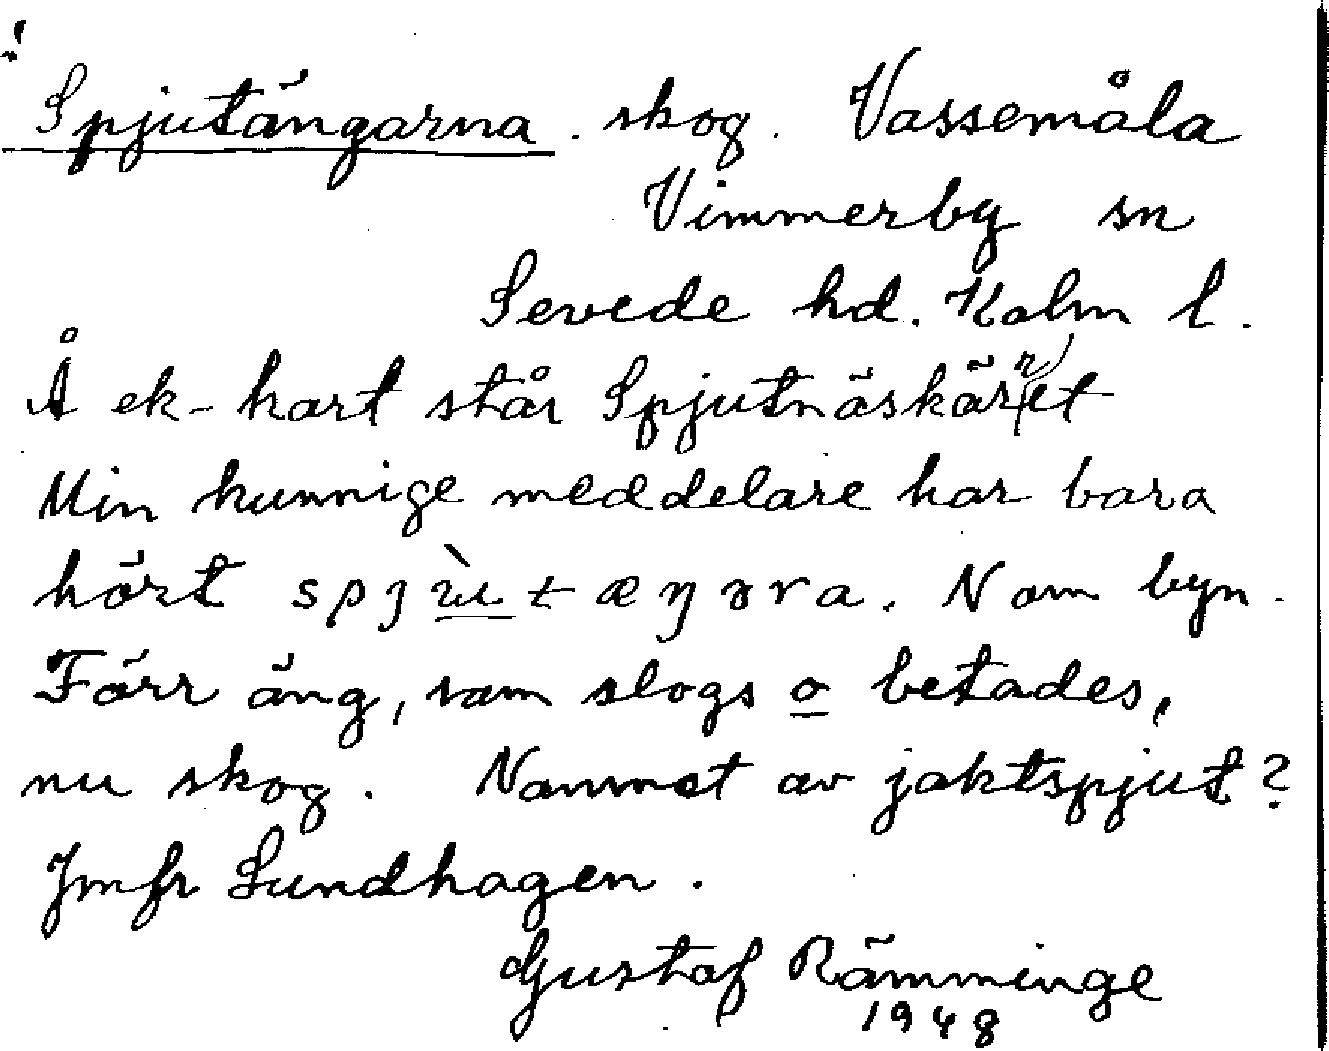 Spjutängarna. skog. Vassemåla
Vimmerby sn
Sevede hd. Kalm l.
Å ek-kart står Spjutnäskärret
Min kunnige meddelare har bara
hört spjùtæŋɜra. N om byn.
Förr äng, som slogs o betades,
nu skog. Namnet av jaktspjut?
Jmfr Lundhagen.
Gustaf Rämminge
1948